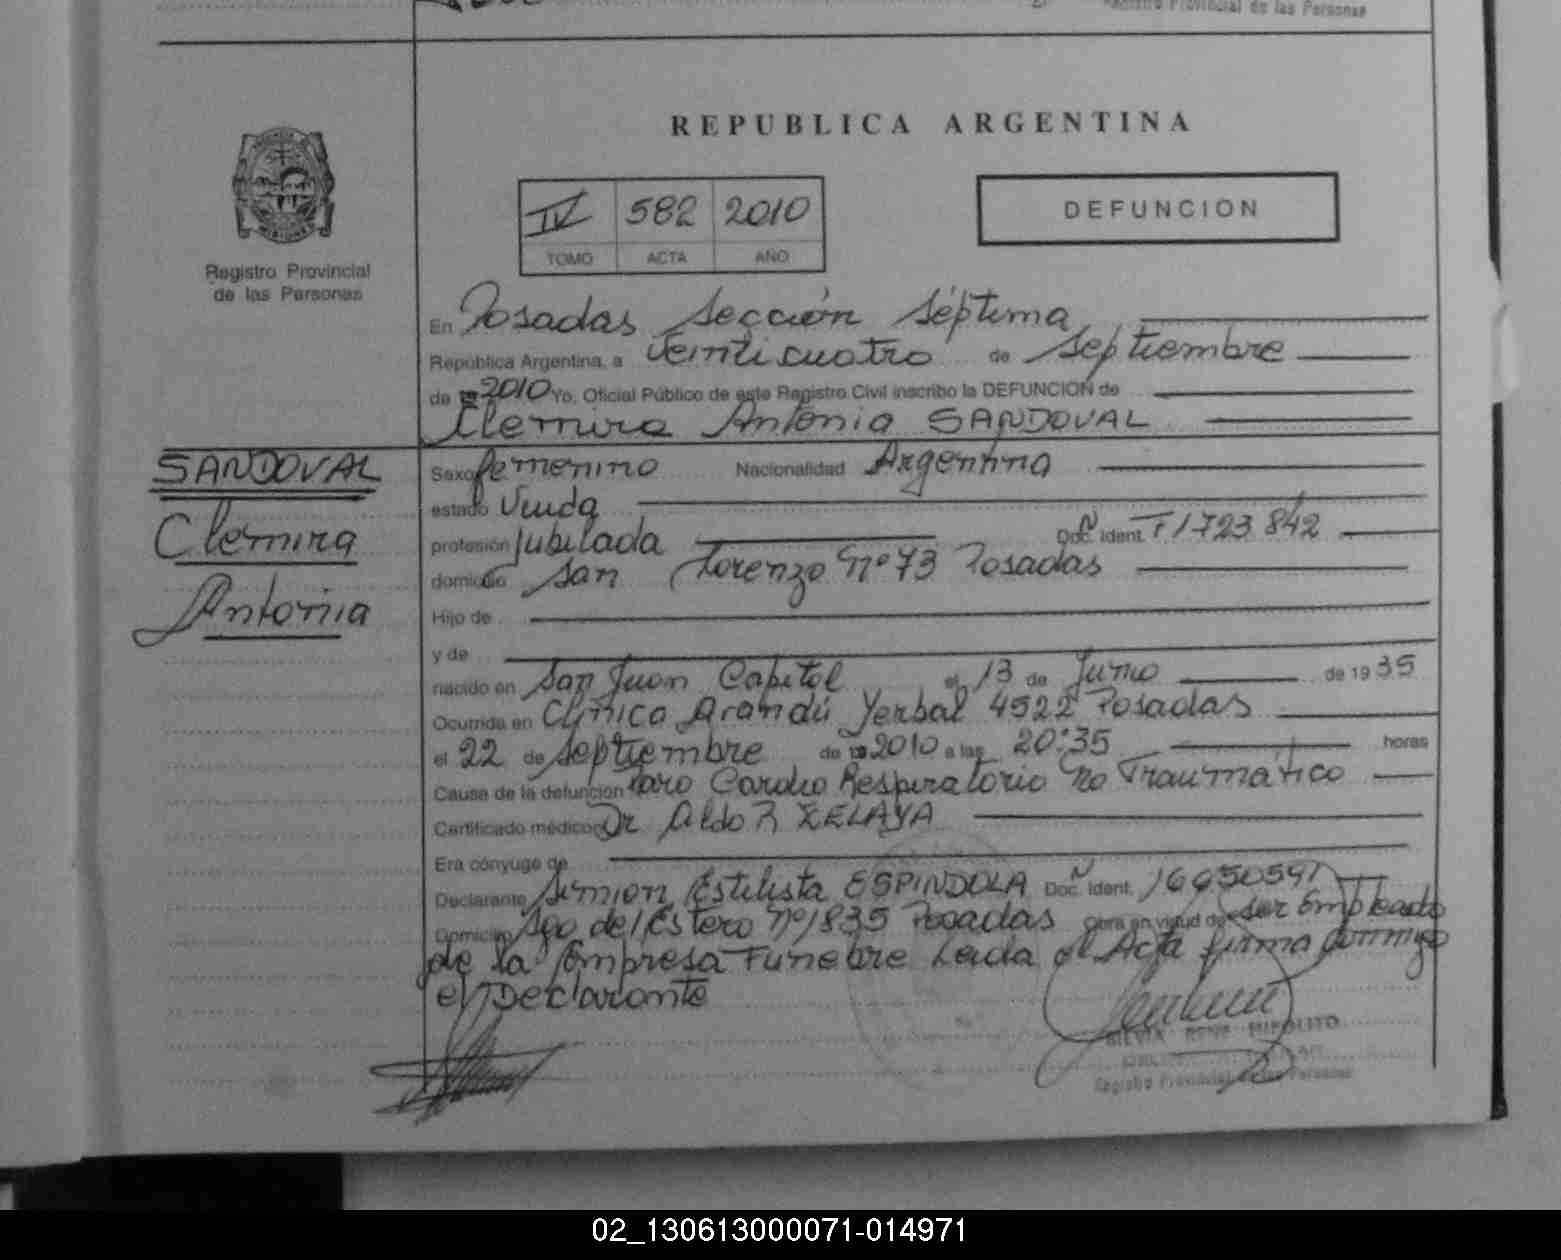 Registro Provincial de las Personas
REPUBLICA ARGENTINA
IV 582 2010
TOMO ACTA AÑO
DEFUNCION
Registro Provincial
de las Personas
En Posadas Sección Séptima
República Argentina, a Veinticuatro de Septiembre
de 19 2010 Yo, Oficial Público de este Registro Civil inscribo la DEFUNCION de
Clemira Antonia SANDOVAL
SANDOVAL
Clemira
Antonia
Sexo femenino Nacionalidad Argentina
estado Viuda
profesión Jubilada Doc. Ident. Nº F1723842
domicilio San Lorenzo Nº 73 Posadas
Hijo de
y de
nacido en San Juan Capital el 13 de Junio de 1935
Ocurrida en Clínica Arandú Yerbal 4522 Posadas
el 22 de Septiembre de 19 2010 a las 20:35 horas
Causa de la defunción Paro Cardio Respiratorio no Traumático
Certificado médico Dr Aldo R ZELAYA
Era cónyuge de
Declarante Simion Estilista ESPINDOLA Doc. Ident. Nº
Domicilio Sgo del Estero Nº 1835 Posadas Obra en virtud de ser Empleado
de la Empresa Funebre Leida el Acta firma conmigo
el Declarante
HIPOLITO
Registro Provincial de las Personas
02_130613000071-014971